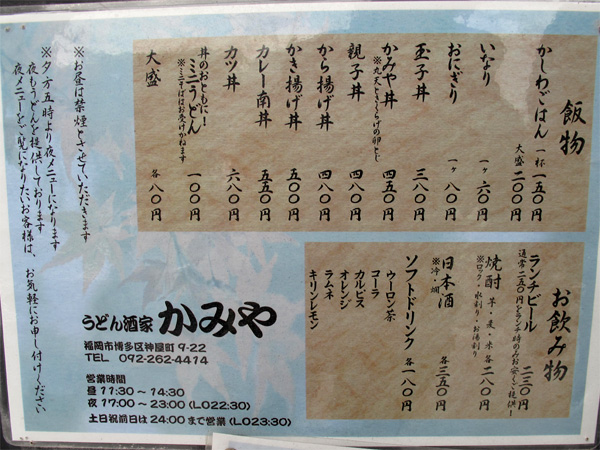 飯物
かしわごはん 一杯 一五〇円
大盛 二〇〇円
いなり 一ヶ 六〇円
おにぎり 一ヶ 八〇円
玉子丼 三八〇円
かみや丼 四五〇円
※丸天ときくらげの卵とじ
親子丼 四八〇円
から揚げ丼 四八〇円
かき揚げ丼 五〇〇円
カレー南丼 五五〇円
カツ丼 六八〇円
丼のおともに!
ミニうどん 一〇〇円
※ミニそばはお受けかねます
大盛 各八〇円
※お昼は禁煙とさせていただきます
※夕方五時より夜メニューになります
夜もうどんを提供しております
夜メニューをご覧になりたいお客様は、お気軽にお申し付けください
お飲み物
ランチビール 二三〇円
通常二五〇円をランチ時のみお安くご提供!
焼酎 芋・麦・米 各二八〇円
※ロック・水割り・お湯割り
日本酒 各三五〇円
※冷・燗
ソフトドリンク 各一八〇円
ウーロン茶
コーラ
カルピス
オレンジ
ラムネ
キリンレモン
うどん酒家 かみや
福岡市博多区神屋町9-22
TEL 092-262-4414
営業時間
昼 11:30~14:30
夜 17:00~23:00 (LO22:30)
土日祝前日は24:00まで営業 (LO23:30)